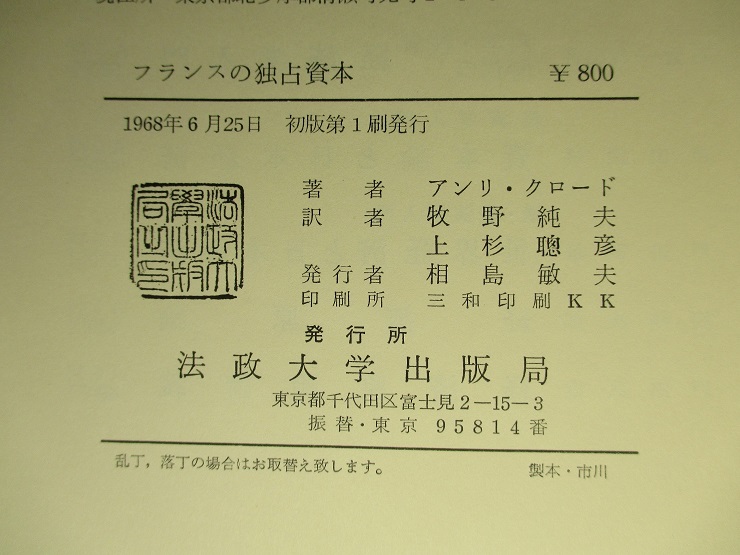 フランスの独占資本 ¥800
1968年6月25日 初版第1刷発行
著者 アンリ・クロード
訳者 牧野純夫
上杉聰彦
発行者 相島敏夫
印刷所 三和印刷KK
発行所
法政大学出版局
東京都千代田区富士見2―15―3
振替・東京 95814番
乱丁,落丁の場合はお取替え致します。 製本・市川
法政大
學出版
局之印